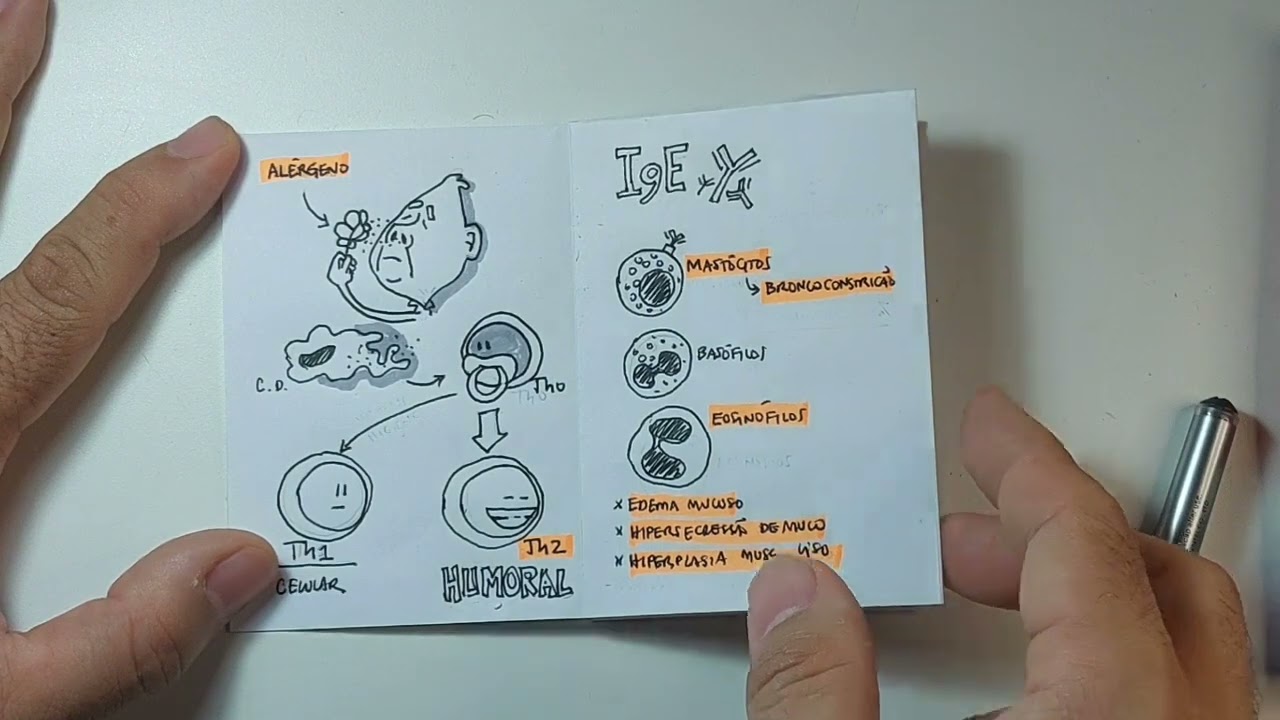 ALÉRGENO
C.D.
Th0
Th1
CELULAR
Th2
HUMORAL
IgE
MASTÓCITOS
BRONCOCONSTRIÇÃO
BASÓFILOS
EOSINÓFILOS
× EDEMA MUCOSO
× HIPERSECREÇÃO DE MUCO
× HIPERPLASIA MUSC LISO